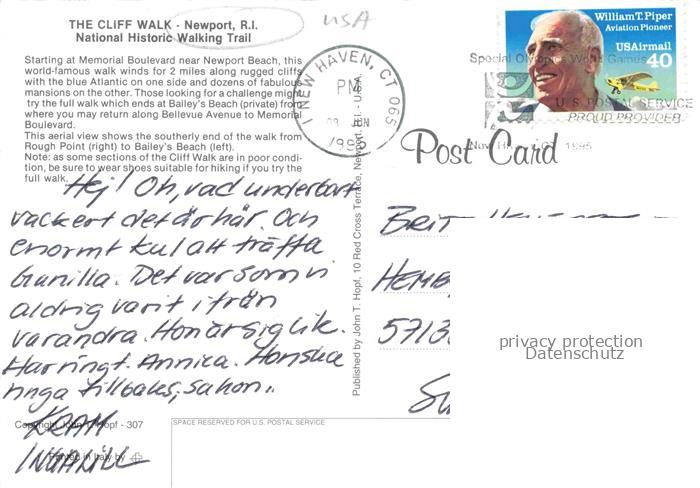 THE CLIFF WALK - Newport, R.I.
National Historic Walking Trail
Starting at Memorial Boulevard near Newport Beach, this
world-famous walk winds for 2 miles along rugged cliffs
with the blue Atlantic on one side and dozens of fabulous
mansions on the other. Those looking for a challenge might
try the full walk which ends at Bailey's Beach (private) from
where you may return along Bellevue Avenue to Memorial
Boulevard.
This aerial view shows the southerly end of the walk from
Rough Point (right) to Bailey's Beach (left).
Note: as some sections of the Cliff Walk are in poor condi-
tion, be sure to wear shoes suitable for hiking if you try the
full walk.
USA
NEW HAVEN, CT 065
PM
1995
William T. Piper
Aviation Pioneer
USAirmail
40
Special Olympics World Games
U.S. POSTAL SERVICE
PROUD PROVIDER
New Haven CT 1995
Post Card
Hej! Oh, vad underbart
vackert det är här. Och
enormt kul att träffa
Gunilla. Det var som vi
aldrig varit ifrån
varandra. Hon är sig lik.
Har ringt Annica. Hon ska
ringa tillbaks, sa hon..
KRAM
INGALILL
Published by John T. Hopf, 10 Red Cross Terrace, Newport, R.I. - U.S.A.
BRIT
HEMB
5713
privacy protection
Datenschutz
Copyright John T. Hopf - 307
Printed in Italy by
SPACE RESERVED FOR U.S. POSTAL SERVICE